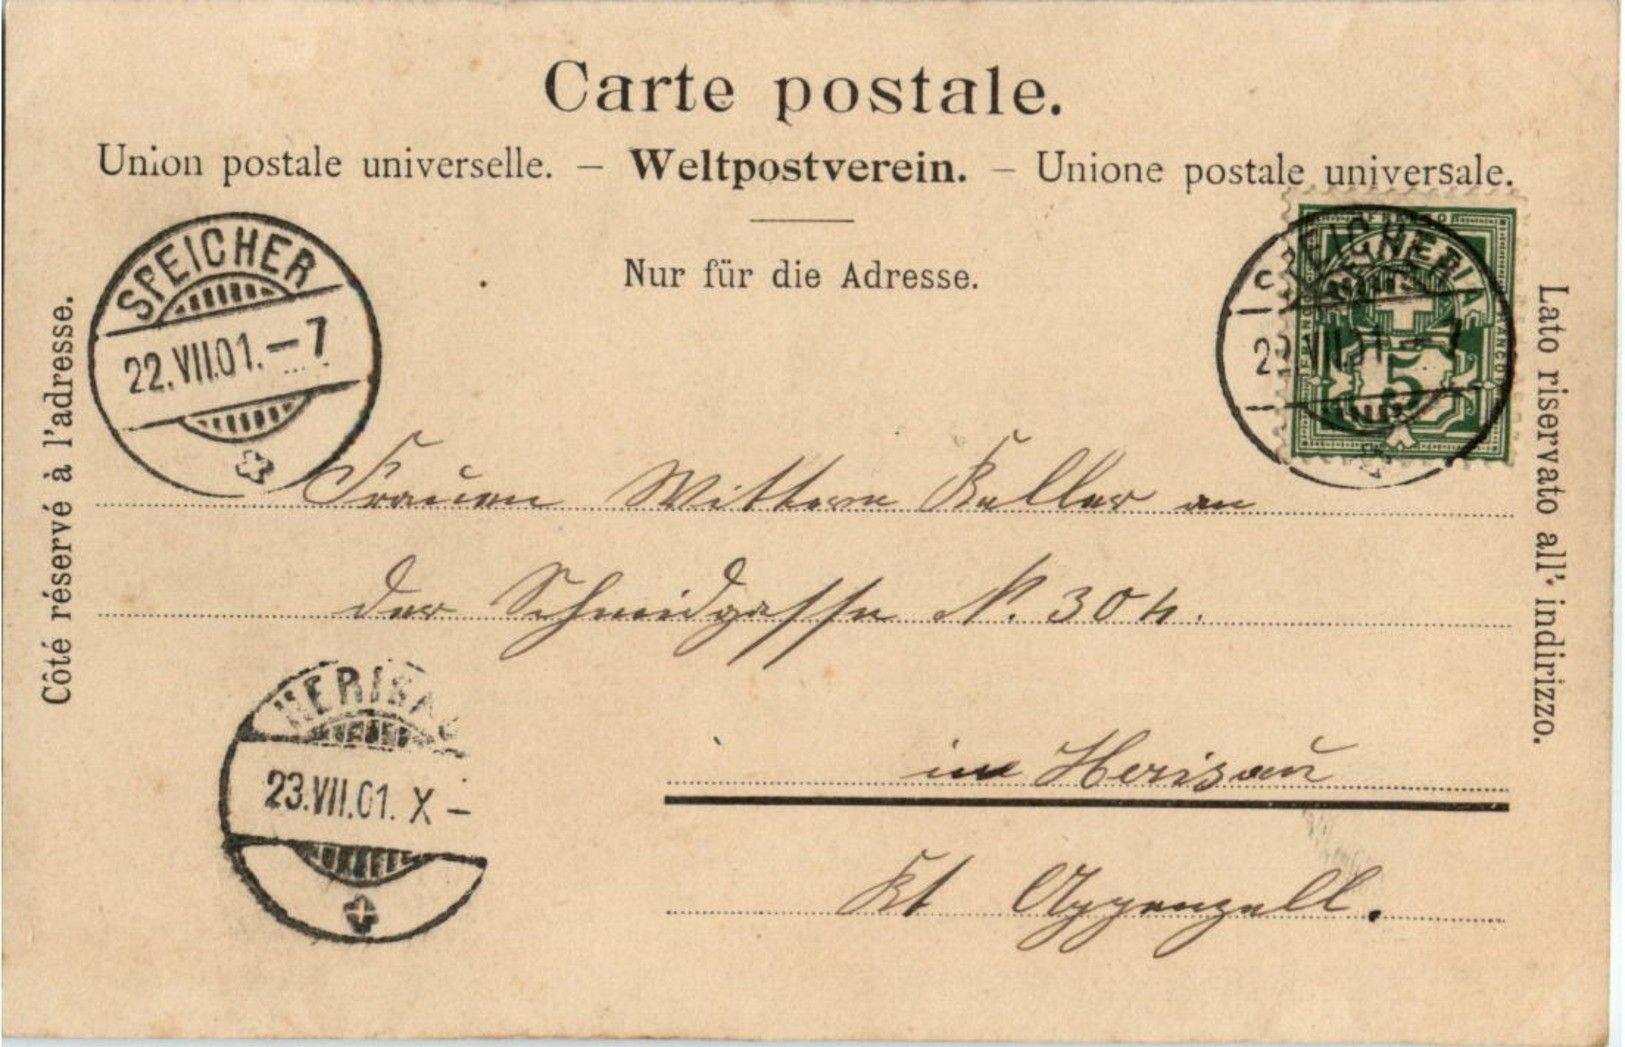 Carte postale.
Union postale universelle. — Weltpostverein. — Unione postale universale.
Nur für die Adresse.
Côté réservé à l'adresse.
Lato riservato all' indirizzo.
SPEICHER
22.VII.01.–7
SPEICHER
22.VII.01.–7
5
Frauen Keller an
der Schmidgasse N. 304.
in Herisau
Kt Appenzell.
HERISAU
23.VII.01. X –